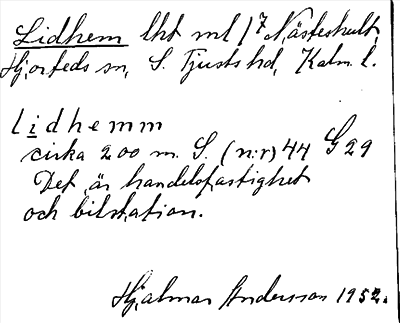 Lidhem lht ml 1⁷ Nästeshult,
Hjorteds sn, S. Tjusts hd, Kalm. l.
lidhemm
cirka 200 m. S. (n:r) 44 G 29
Det är handelsfastighet
och bilstation.
Hjalmar Andersson 1952.